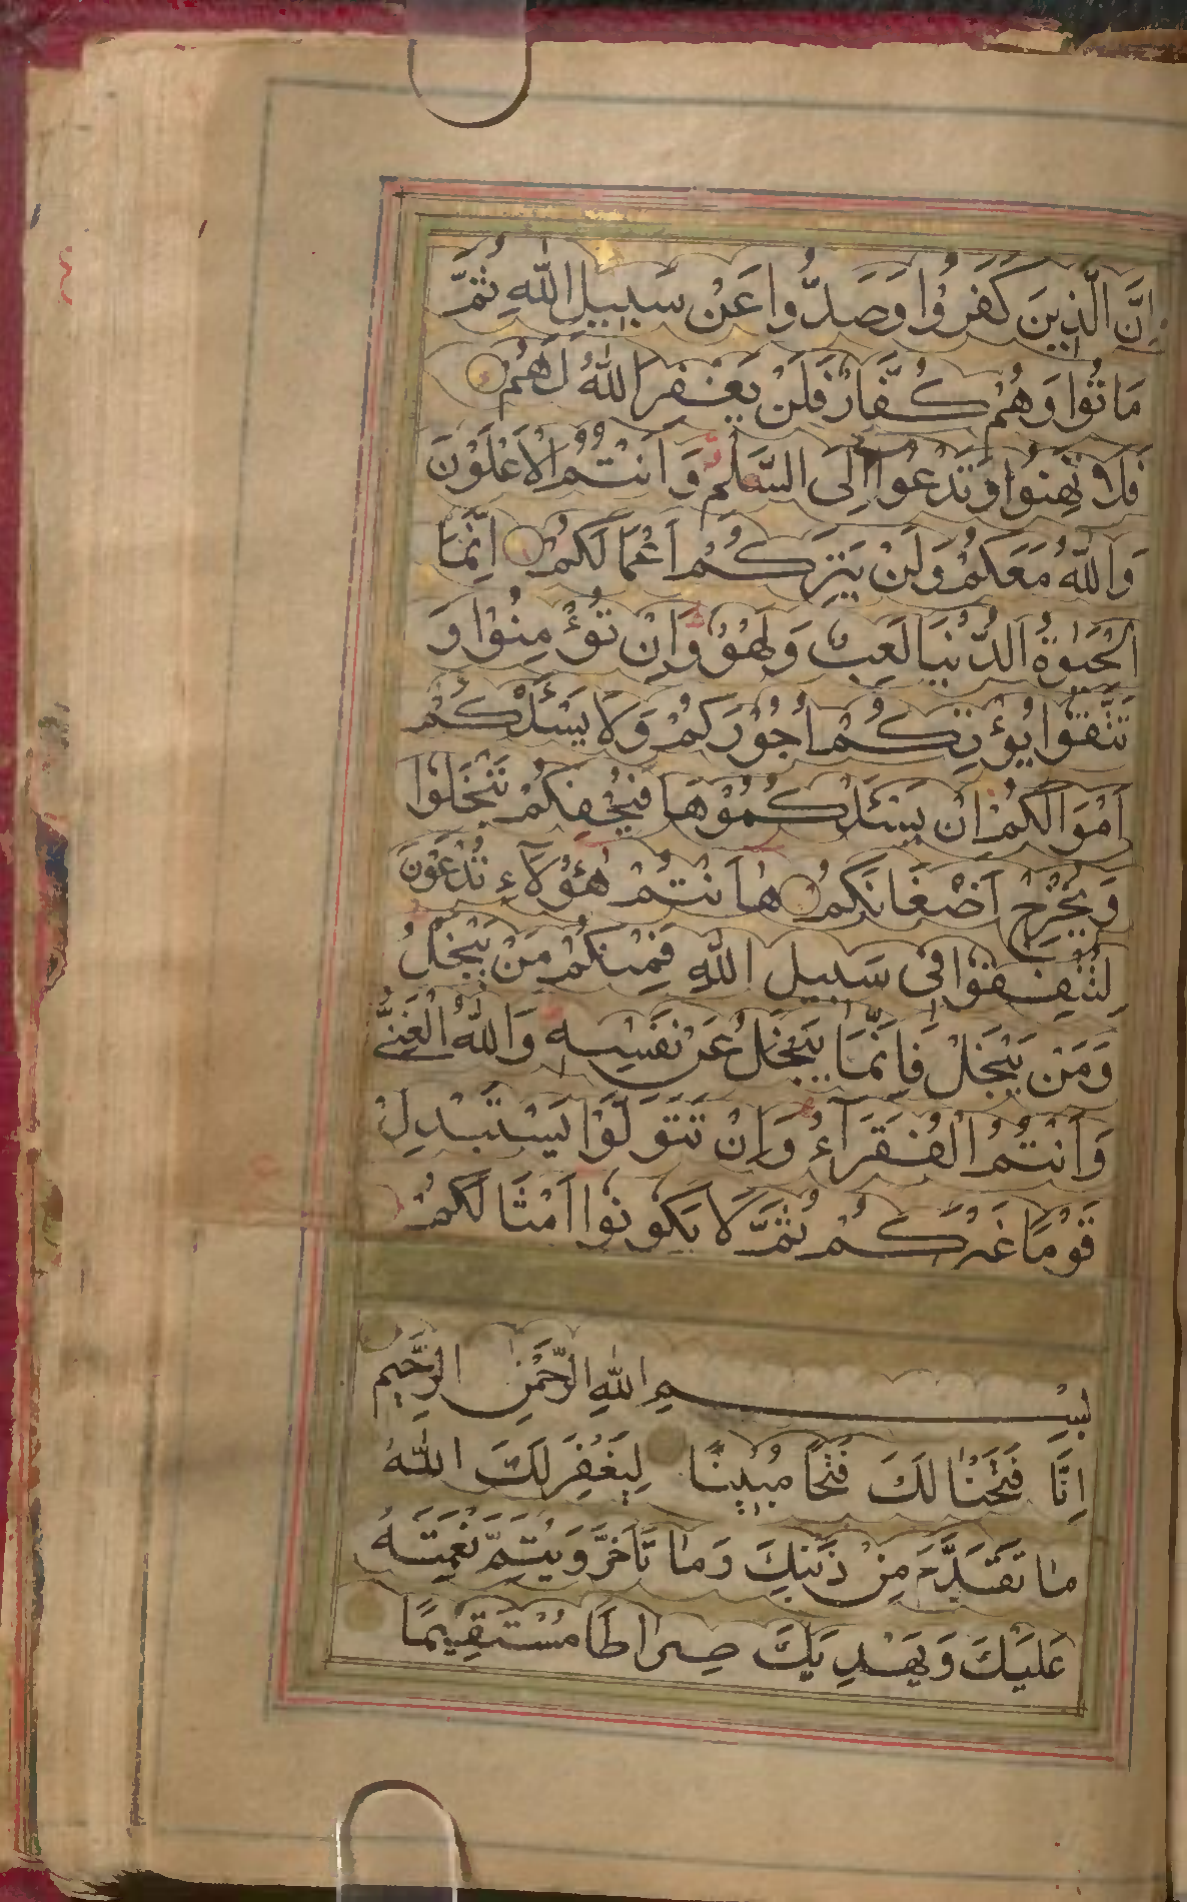 اِنَّ الَّذِينَ كَفَرُوا وَصَدُّوا عَنْ سَبِيلِ اللّٰهِ ثُمَّ
مَاتُوا وَهُمْ كُفَّارٌ فَلَنْ يَغْفِرَ اللّٰهُ لَهُمْ
فَلَا تَهِنُوا وَتَدْعُوا اِلَى السَّلْمِ وَاَنْتُمُ الْاَعْلَوْنَ
وَاللّٰهُ مَعَكُمْ وَلَنْ يَتِرَكُمْ اَعْمَالَكُمْ اِنَّمَا
الْحَيٰوةُ الدُّنْيَا لَعِبٌ وَلَهْوٌ وَاِنْ تُؤْمِنُوا وَ
تَتَّقُوا يُؤْتِكُمْ اُجُوْرَكُمْ وَلَا يَسْئَلْكُمْ
اَمْوَالَكُمْ اِنْ يَسْئَلْكُمُوْهَا فَيُحْفِكُمْ تَبْخَلُوا
وَيُخْرِجْ اَضْغَانَكُمْ هٰا اَنْتُمْ هٰؤُلَآءِ تُدْعَوْنَ
لِتُنْفِقُوْا فِى سَبِيلِ اللّٰهِ فَمِنْكُمْ مَنْ يَبْخَلُ
وَمَنْ يَبْخَلْ فَاِنَّمَا يَبْخَلُ عَنْ نَفْسِهِ وَاللّٰهُ الْغَنِىُّ
وَاَنْتُمُ الْفُقَرَآءُ وَاِنْ تَتَوَلَّوْا يَسْتَبْدِلْ
قَوْمًا غَيْرَكُمْ ثُمَّ لَا يَكُونُوا اَمْثَالَكُمْ
بِسْمِ اللّٰهِ الرَّحْمٰنِ الرَّحِيمِ
اِنَّا فَتَحْنَا لَكَ فَتْحًا مُبِينًا لِيَغْفِرَ لَكَ اللّٰهُ
مٰا تَقَدَّمَ مِنْ ذَنْبِكَ وَمٰا تَاَخَّرَ وَيُتِمَّ نِعْمَتَهُ
عَلَيْكَ وَيَهْدِيَكَ صِرَاطًا مُسْتَقِيمًا